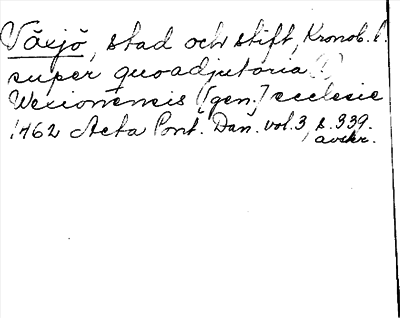 Växjö, stad och stift, Kronob. l.
super quoadjutoria (!)
Wexionensis [gen.] ecclesie
1462 Acta Pont. Dan. vol. 3, s. 339.
avskr.